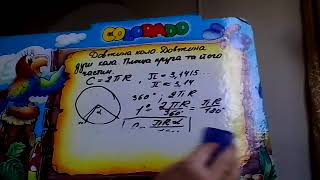 COLORADO
Довжина кола. Довжина
дуги кола. Площа круга та його
частин.
C = 2πR , π = 3,1415...
π ≈ 3,14
360° : 2πR
1° 2πR/360° = πR/180°
α
πRα